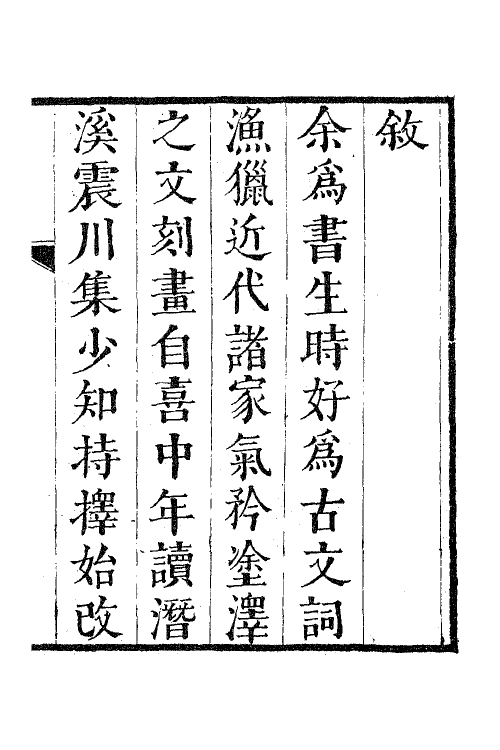 敘
余爲書生時好爲古文詞
漁獵近代諸家氣矜塗澤
之文刻畫自喜中年讀潛
溪震川集少知持擇始改